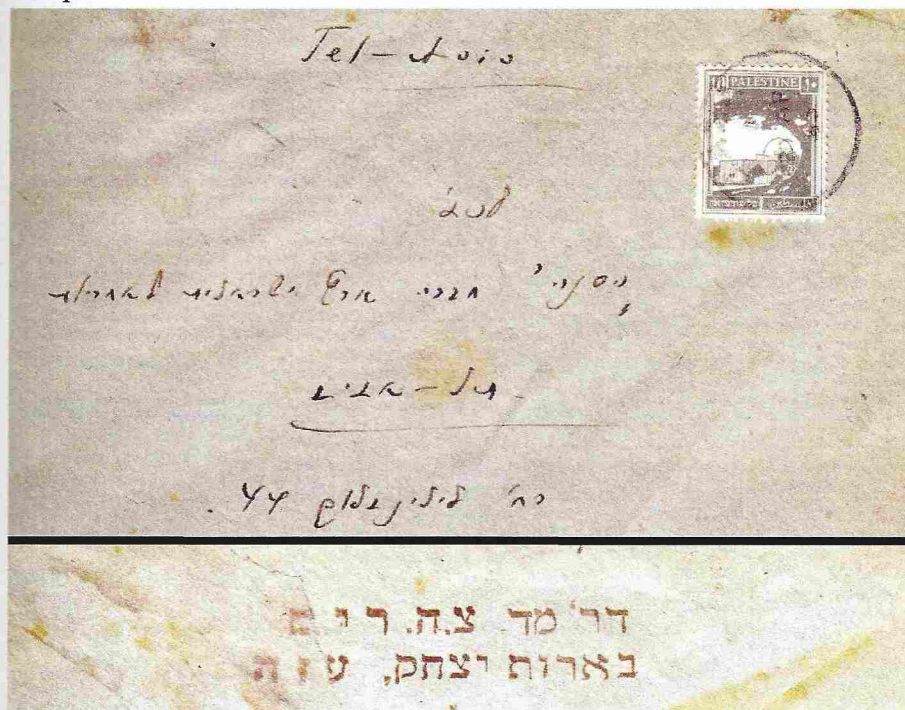 Tel-Aviv
PALESTINE
לכב'
חברה ארץ ישראלית לאחריות
תל-אביב
רח' לילינבלום 44.
דר' מד. צ.ה. ר י י ס
בארות יצחק, ע ז ה